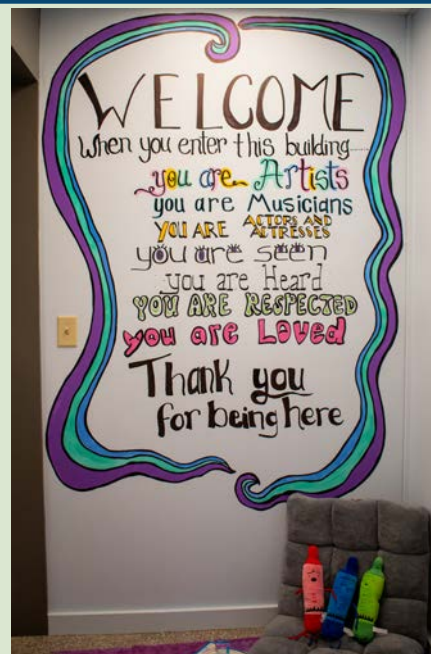 WELCOME
When you enter this building......
you are Artists
you are Musicians
YOU ARE ACTORS AND ACTRESSES
you are seen
you are Heard
YOU ARE RESPECTED
you are Loved
Thank you
for being here